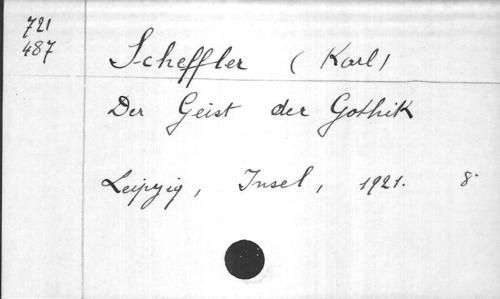 721
487
Scheffler (Karl)
Der Geist der Gothik
Leipzig, Insel, 1921. 8°